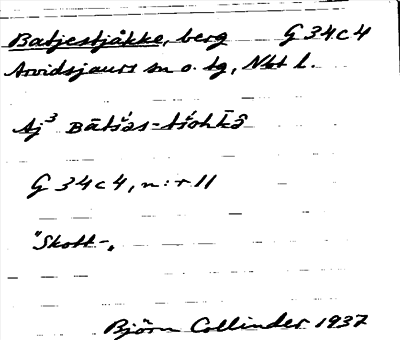 Batjestjåkke, berg G 34c4
Arvidsjaurs sn o. tg, Nbt l.
Aj³ ʙāťšas-tšohkɛ̄
G 34c4, n:r 11
"Skott-"
Björn Collinder 1937